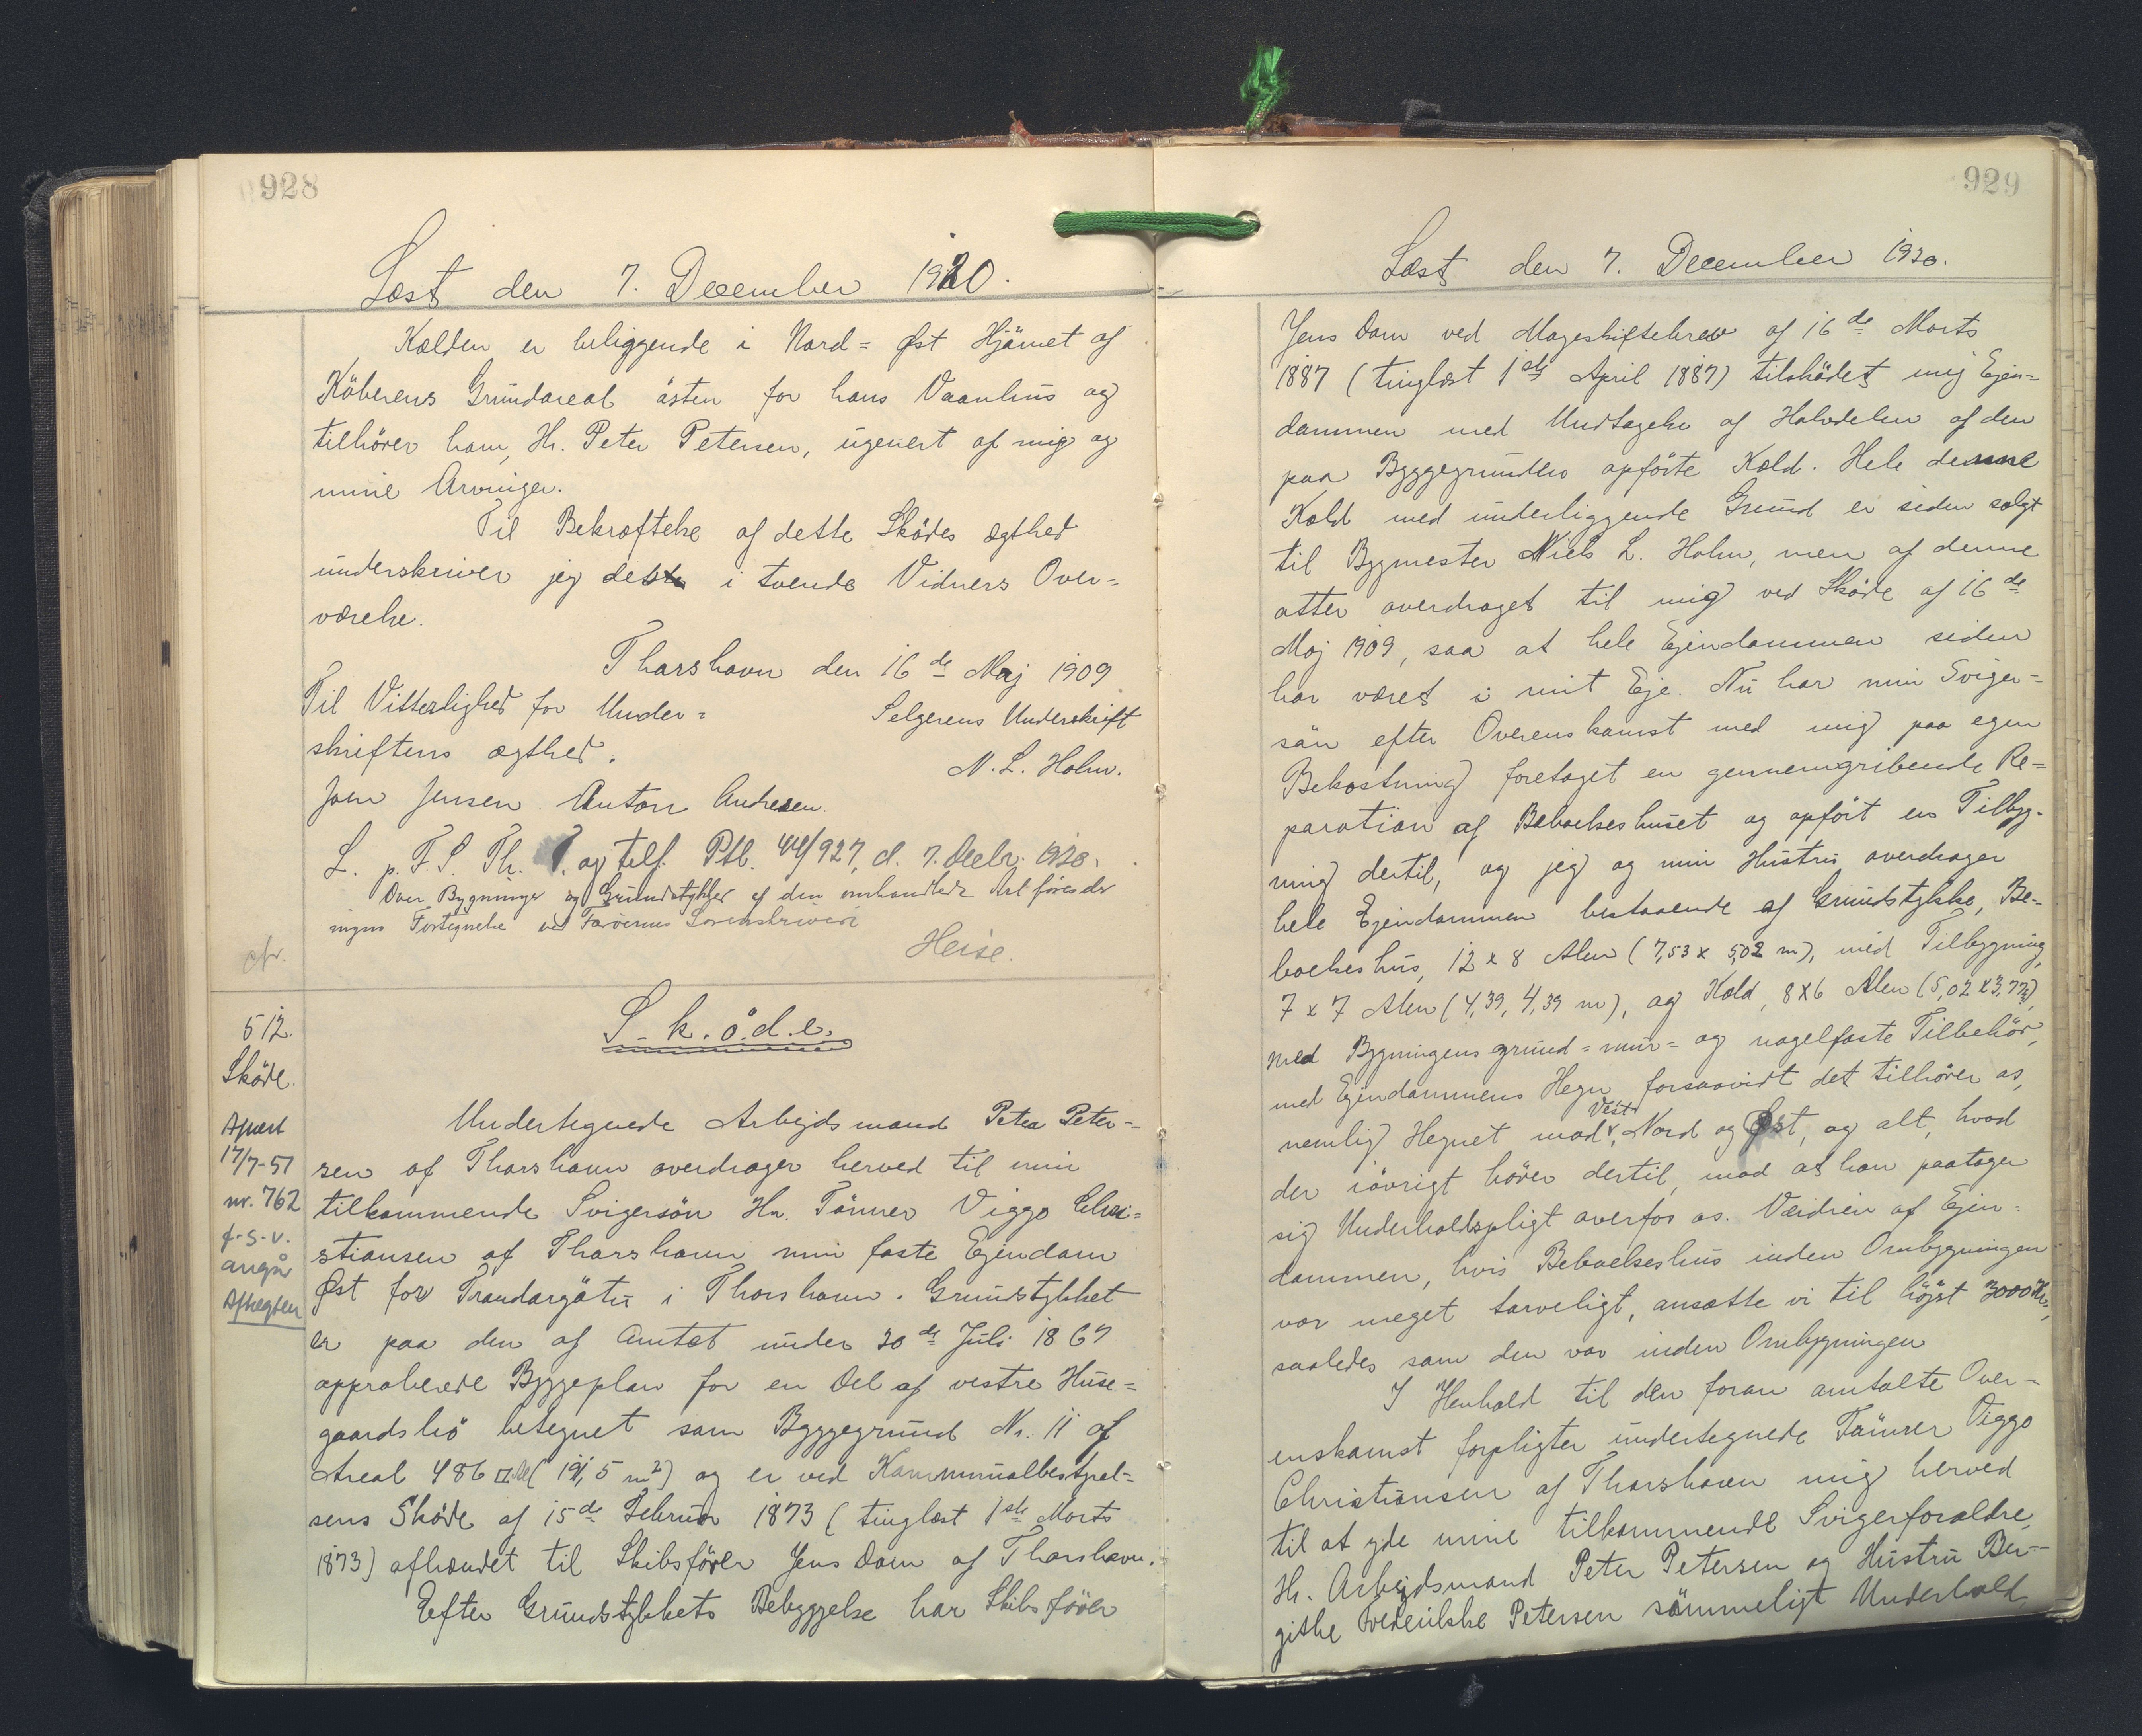 928
Læst den 7. December 1920.
Kælden er beliggende i Nord = Øst Hjörnet af
Köberens Grundareal östen for hans Vaanhus og
tilhörer ham, Hr. Peter Petersen, ugenert af mig og
mine Arvinger.
Til Bekræftelse af dette Sködes Ægthed
underskriver jeg dette i tvende Vidners Over=
værelse.
Thorshavn den 16de Maj 1909
Til Vitterlighed for Under=
Selgerens Underskrift
skriftens Ægthed.
N. L. Holm.
Joen Jensen. Anton Andresen.
L. p. F. S. Th. T. og tilf. Ptb. 44/927, d. 7. Decbr. 1920.
Over Bygninger og Grundstykker af den omhandlede Art föres der
ingen Fortegnelse ved Færöernes Sorenskriveri
Heise.
cfr.
512.
Sköde.
S.k.ö.d.e.
Aflæst
17/7-51
nr. 762
f.s.v.
angår
Aftægten
Undertegnede Arbejdsmand Peter Peter=
sen af Thorshavn overdrager herved til min
tilkommende Svigersön Hr. Tömrer Viggo Chri=
stiansen af Thorshavn min faste Ejendom
Øst for Trondargötu i Thorshavn. Grundstykket
er paa den af Amtet under 20de Juli 1867
approberede Byggeplan for en Del af vestre Huse=
gaardsbö betegnet som Byggegrund Nr. 11 af
Areal 486 □ Al (191,5 m²) og er ved Kommunalbestyrel=
sens Sköde af 15de Februar 1873 (tinglæst 1ste Marts
1873) afhændet til Skibsförer Jens Dam af Thorshavn.
Efter Grundstykkets Bebyggelse har Skibsförer
929
Læst den 7. December 1920.
Jens Dam ved Mageskiftebrev af 16de Marts
1887 (tinglæst 1ste April 1887) tilskødet mig Ejen=
dommen med Undtagelse af Halvdelen af den
paa Byggegrunden opförte Kæld. Hele denne
Kæld med underliggende Grund er siden solgt
til Bygmester Niels L. Holm, men af denne
atter overdraget til mig ved Sköde af 16de
Maj 1909, saa at hele Ejendommen siden
har været i mit Eje. Nu har min Sviger=
sön efter Overenskomst med mig paa egen
Bekostning foretaget en gennemgribende Re=
paration af Beboelseshuset og opfört en Tilbyg-
ning dertil, og jeg og min Hustru overdrager
hele Ejendommen bestaaende af Grundstykke, Be-
boelseshus, 12 x 8 Alen (7,53 x 5,02 m), med Tilbygning,
7 x 7 Alen (4,39, 4,39 m), og Kæld, 8x6 Alen (5,02 x 3,77),
med Bygningens grund= mur= og nagelfaste Tilbehör,
med Ejendommens Hegn, forsaavidt det tilhörer os,
nemlig Hegnet mod Vest, Nord og Øst, og alt, hvad
der iövrigt hörer dertil, mod at han paatager
sig Underholdspligt overfor os. Værdien af Ejen=
dommen, hvis Beboelseshus inden Ombygningen
var meget tarveligt, ansætte vi til höjst 3000 Kr.,
saaledes som den var inden Ombygningen
I Henhold til den foran omtalte Over=
enskomst forpligter undertegnede Tömrer Viggo
Christiansen af Thorshavn mig herved
til at yde mine tilkommende Svigerforældre,
Hr. Arbejdsmand Peter Petersen og Hustru Bir=
githe Frederikke Petersen sömmeligt Underhold